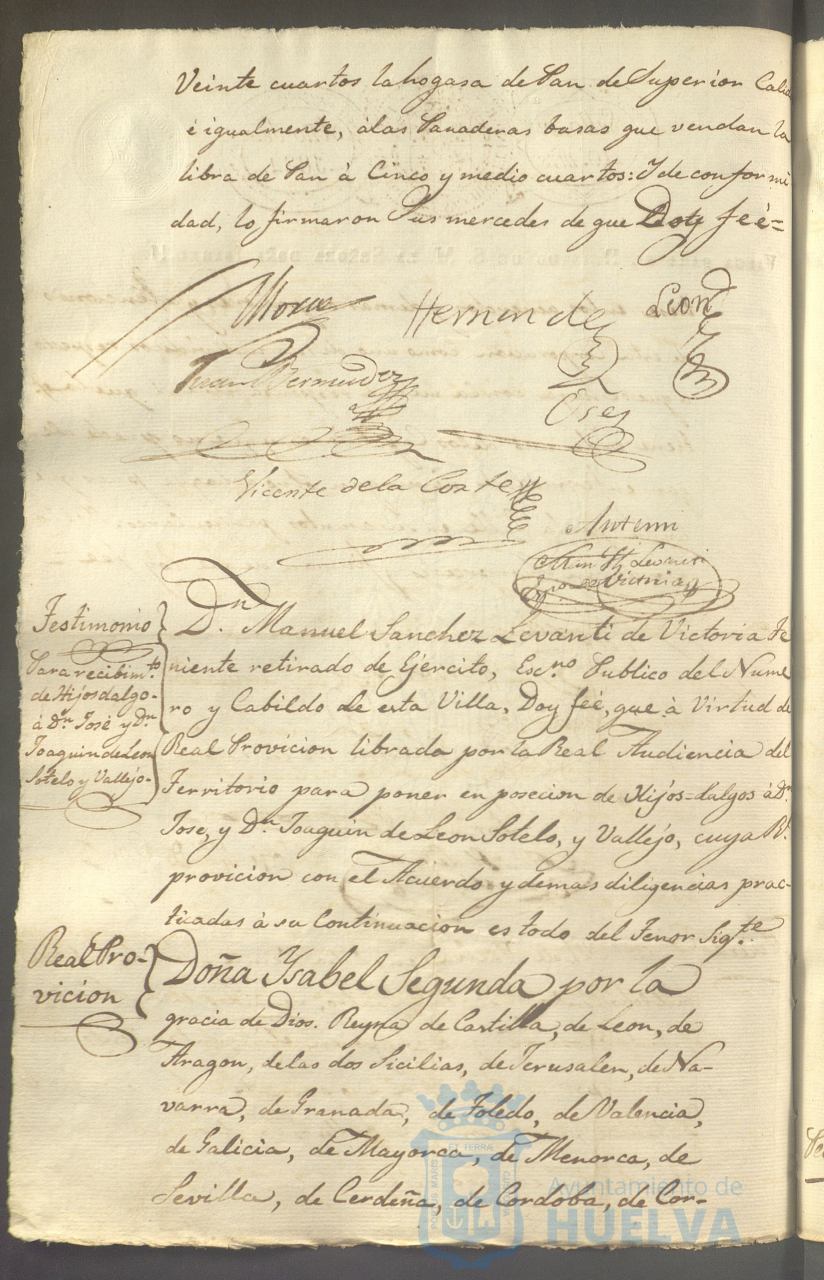 Veinte cuartos la hogasa de Pan de Superior Calid
é igualmente, á las Panaderas basas que vendan la
libra de Pan á Cinco y medio cuartos: Y de conformi
dad, lo firmaron Sus mercedes de que Doy feé=
Hernande
Leon
Juan Bermudez
Vicente de la Corte
Ante mi
Man
Levanti
de Victoria
Testimonio
Para recibim.to
de Hijosdalgo
á D.n José y D.n
Joaquin de Leon
Sotelo y Vallejo.
D.n Manuel Sanchez Levanti de Victoria Te
niente retirado de Ejército, Esc.no Publico del Nume
ro y Cabildo de esta Villa, Doy feé, que á Virtud de
Real Provicion librada por la Real Audiencia del
Territorio para poner en posecion de Hijos-dalgos á D.n
Jose, y D.n Joaquin de Leon Sotelo, y Vallejo, cuya R.l
provicion con el Acuerdo y demas diligencias prac-
ticadas á su Continuacion es todo del Tenor Sig.te
Real Pro-
vicion
Doña Ysabel Segunda por la
gracia de Dios. Reyna de Castilla, de Leon, de
Aragon, de las dos Sicilias, de Jerusalen, de Na-
varra, de Granada, de Toledo, de Valencia,
de Galicia, de Mayorca, de Menorca, de
Sevilla, de Cerdeña, de Cordoba, de Cor-
Ayuntamiento de
HUELVA